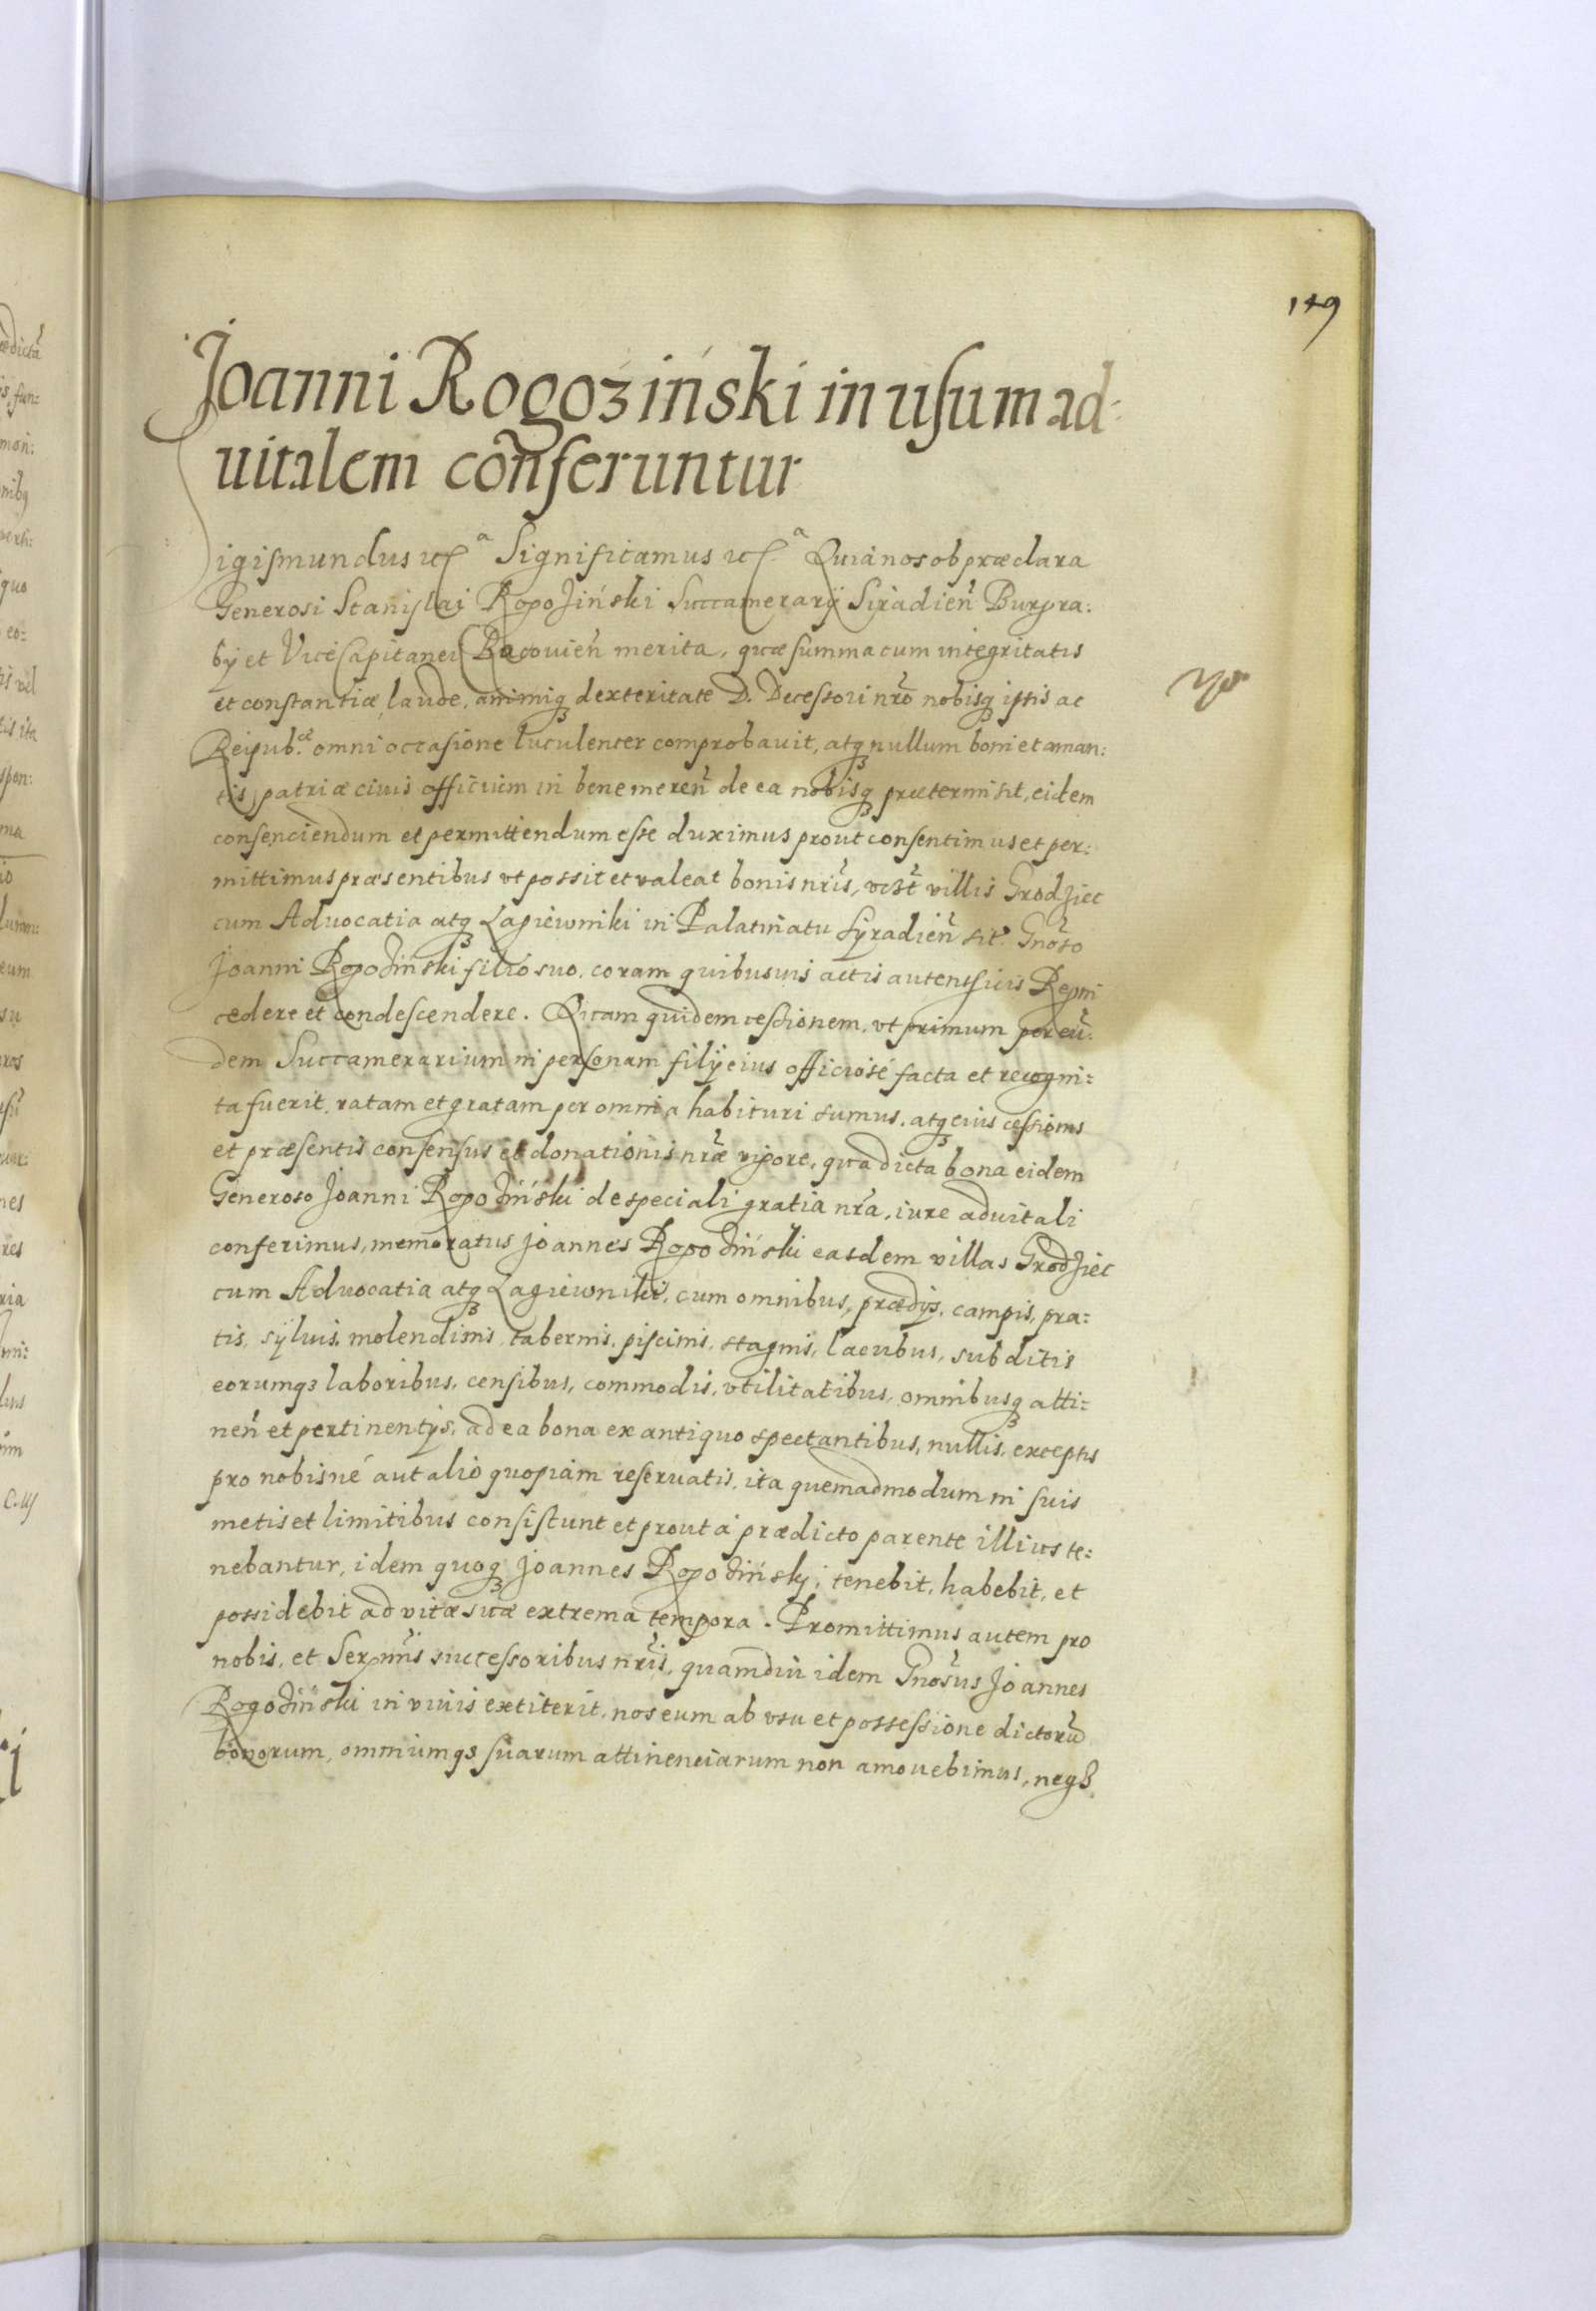 149
Joanni Rogoziński in usum ad-
uitalem conferuntur
Sigismundus etc͠ᵃ Significamus etc͠ᵃ Quia nos ob præclara
Generosi Stanislai Rogoziński Succamerarÿ Siradień Burgra:
bÿ et Vice Capitanei Racouień merita, quæ summa cum integritatis
et constantiæ laude, animiqꝫ dexteritate D. Decessori nr̃o nobisqꝫ ipsis ac
Reipub.æ omni occasione luculenter comprobauit, atqꝫ nullum boni et aman:
tis patriæ ciuis officium in bene mereñ de ea nobisqꝫ prætermisit, eidem
consenciendum et permittendum esse duximus prout consentimus et per:
mittimus præsentibus vt possit et valeat bonis nr̃is, vcʒt villis Grodziec
cum Aduocatia atqꝫ Lagiewniki in Palatinatu Syradień sit. Gnoso
Joanni Rogoziński filio suo, coram quibusuis actis autenticis Regni
cedere et condescendere. Quam quidem cessionem, vt primum per eũ:
dem Succamerarium in personam filÿ eius officiosé facta et recogni:
ta fuerit, ratam et gratam per omnia habituri sumus, atqꝫ eius cessionis
et præsentis consensus et donationis nr̃æ vigore, qua dicta bona eidem
Generoso Joanni Rogoziński de speciali gratia nr̃a, iure aduitali
conferimus, memoratus Joannes Rogoziński easdem villas Grodziec
cum Aduocatia atqꝫ Lagiewniki, cum omnibus, prædÿs, campis, pra:
tis, sÿluis, molendinis, tabernis, piscinis, stagnis, lacubus, subditis
eorumqꝫ laboribus, censibus, commodis, vtilitatibus, omnibusqꝫ atti:
neñ et pertinentÿs, ad ea bona ex antiquo spectantibus, nullis, exceptis
pro nobis né aut alio quopiam reseruatis, ita quemadmodum in suis
metis et limitibus consistunt et prout á prædicto parente illius te:
nebantur, idem quoqꝫ Joannes Rogozińskÿ, tenebit, habebit, et
possidebit ad vitæ suæ extrema tempora. Promittimus autem pro
nobis, et Serm̃is successoribus nr̃is, quamdiu idem Gnosus Joannes
Rogoziński in viuis extiterit, nos eum ab vsu et possessione dictorũ
bonorum, omniumqꝫ suarum attinenciarum non amouebimus, neqꝫ